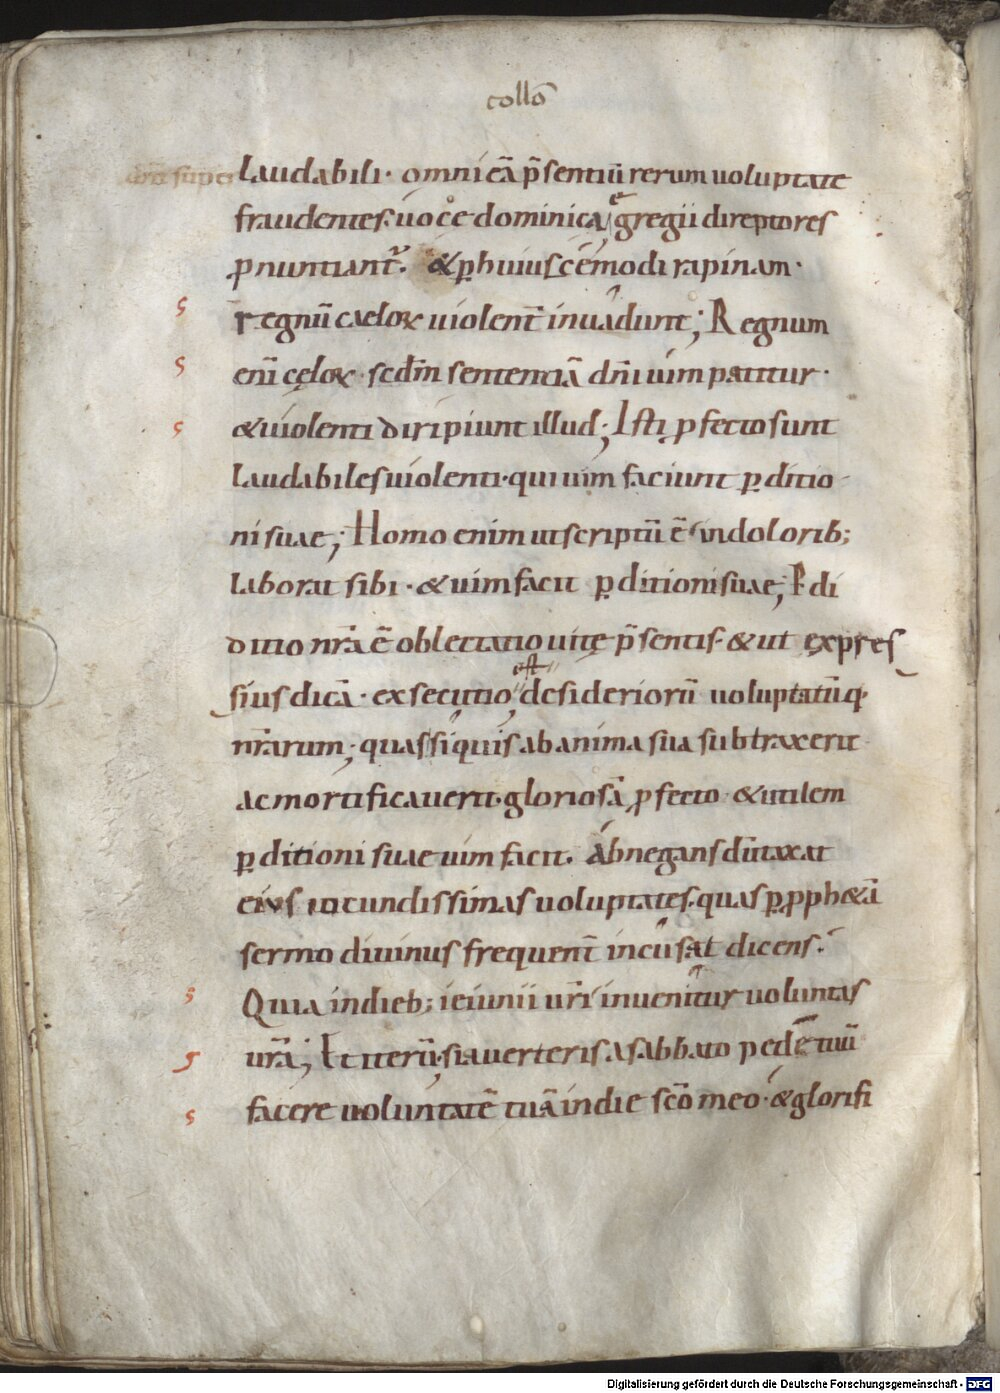 collō
laudabili · omni eā p̄sentiū rerum uoluptate
fraudentes · uoce dominica egregii direptores
ꝓnuntiant᷑ · & ꝑ huiuscemodi rapinam ·
regnū caeloꝝ uiolent̄ inuadunt ; Regnum
enī cęloꝝ · scd̄m sententiā dn̄i uim patitur ·
& uiolenti diripiunt illud ; Isti ꝓfecto sunt
laudabiles uiolenti · qui uim faciunt ꝑditio
ni suae ; Homo enim ut scriptū ē in dolorib;
laborat sibi · & uim facit ꝑditioni suae ; P di
ditio nr̄a ē oblectatio uitę p̄sentis · & ut expres
sius dicā · exsecutio est desideriorū uoluptatūq·
nr̄arum ; quas siquis ab anima sua subtraxerit
ac mortificauerit · gloriosā ꝓfecto & utilem
ꝑditioni suae uim facit . Abnegans dūtaxat
eius iocundissimas uoluptates · quas ꝑ ꝓph&ā
sermo diuinus frequent̄ incusat dicens .
Quia in dieb; ieiunii ur̄i inuenitur uoluntas
ur̄a ; Et iterū · si auerteris a sabbato pedē tuū
facere uoluntatē tuā in die sc̄o meo · & glorifi
Digitalisierung gefördert durch die Deutsche Forschungsgemeinschaft - DFG